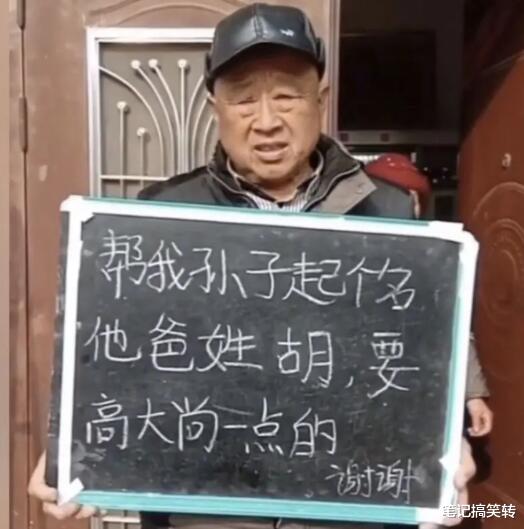 帮我孙子起个名
他爸姓胡,要
高大尚一点的
谢谢
笔记搞笑转